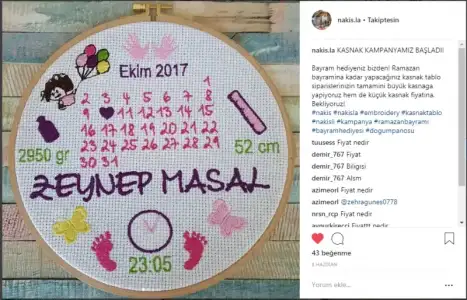 Ekim 2017
1
2 3 4 5 6 7 8
9 11 12 13 14 15
16 17 18 19 20 21 22
23 24 25 26 27 28 29
30 31
2950 gr
52 cm
ZEYNEP MASAL
23:05
nakis.la • Takiptesin
nakis.la KASNAK KAMPANYAMIZ BAŞLADI!
Bayram hediyeniz bizden! Ramazan
bayramına kadar yapacağınız kasnak tablo
siparislerinizin tamamını büyük kasnaga
yapıyoruz hem de küçük kasnak fiyatina.
Bekliyoruz!
#nakis #naksila #ambroidery #kasnaktablo
#nakisli #kampanya #ramazanbayramı
#bayramhediyesi #dogumpanosu
tuusess Fiyat nedir
demir_767 Fiyat
demir_767 Biligisi
demir_767 Alsm
azimeorl Fiyat nedir
azimeorl @zehragunes0778
nrsn_rcp Fiyat nedir
43 beğenme
5 HAZIRAN
Yorum ekle...